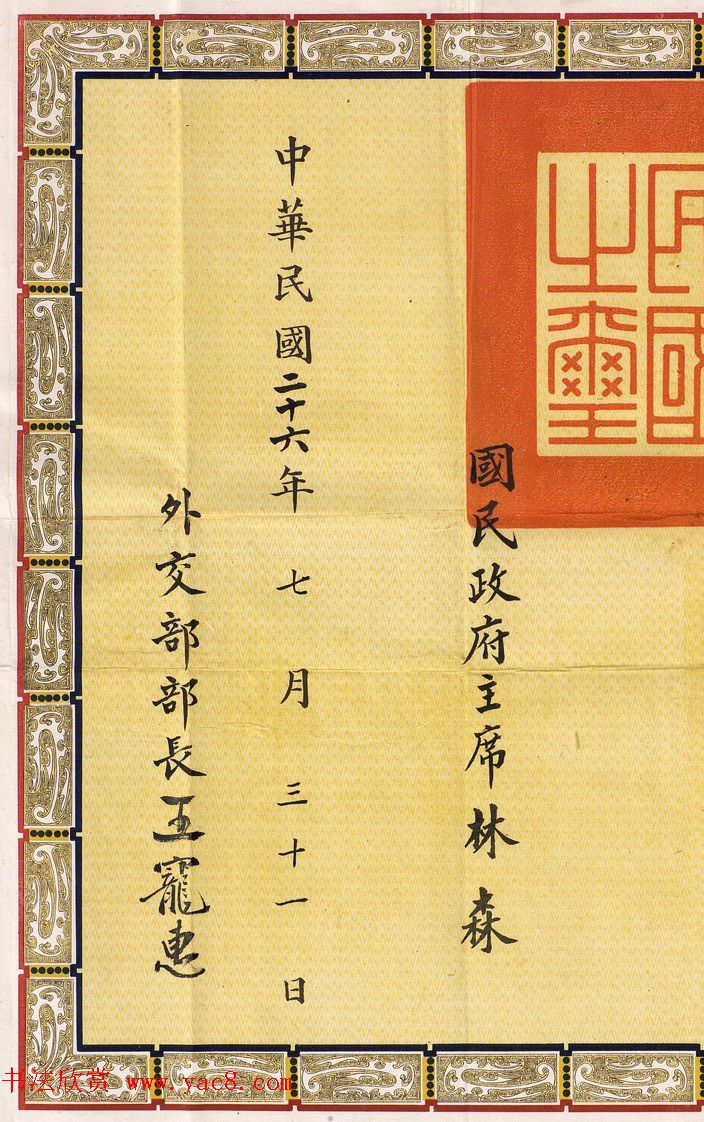 民國之璽
國民政府主席林森
中華民國二十六年七月三十一日
外交部部長王寵惠
书法欣赏 www.yac8.com